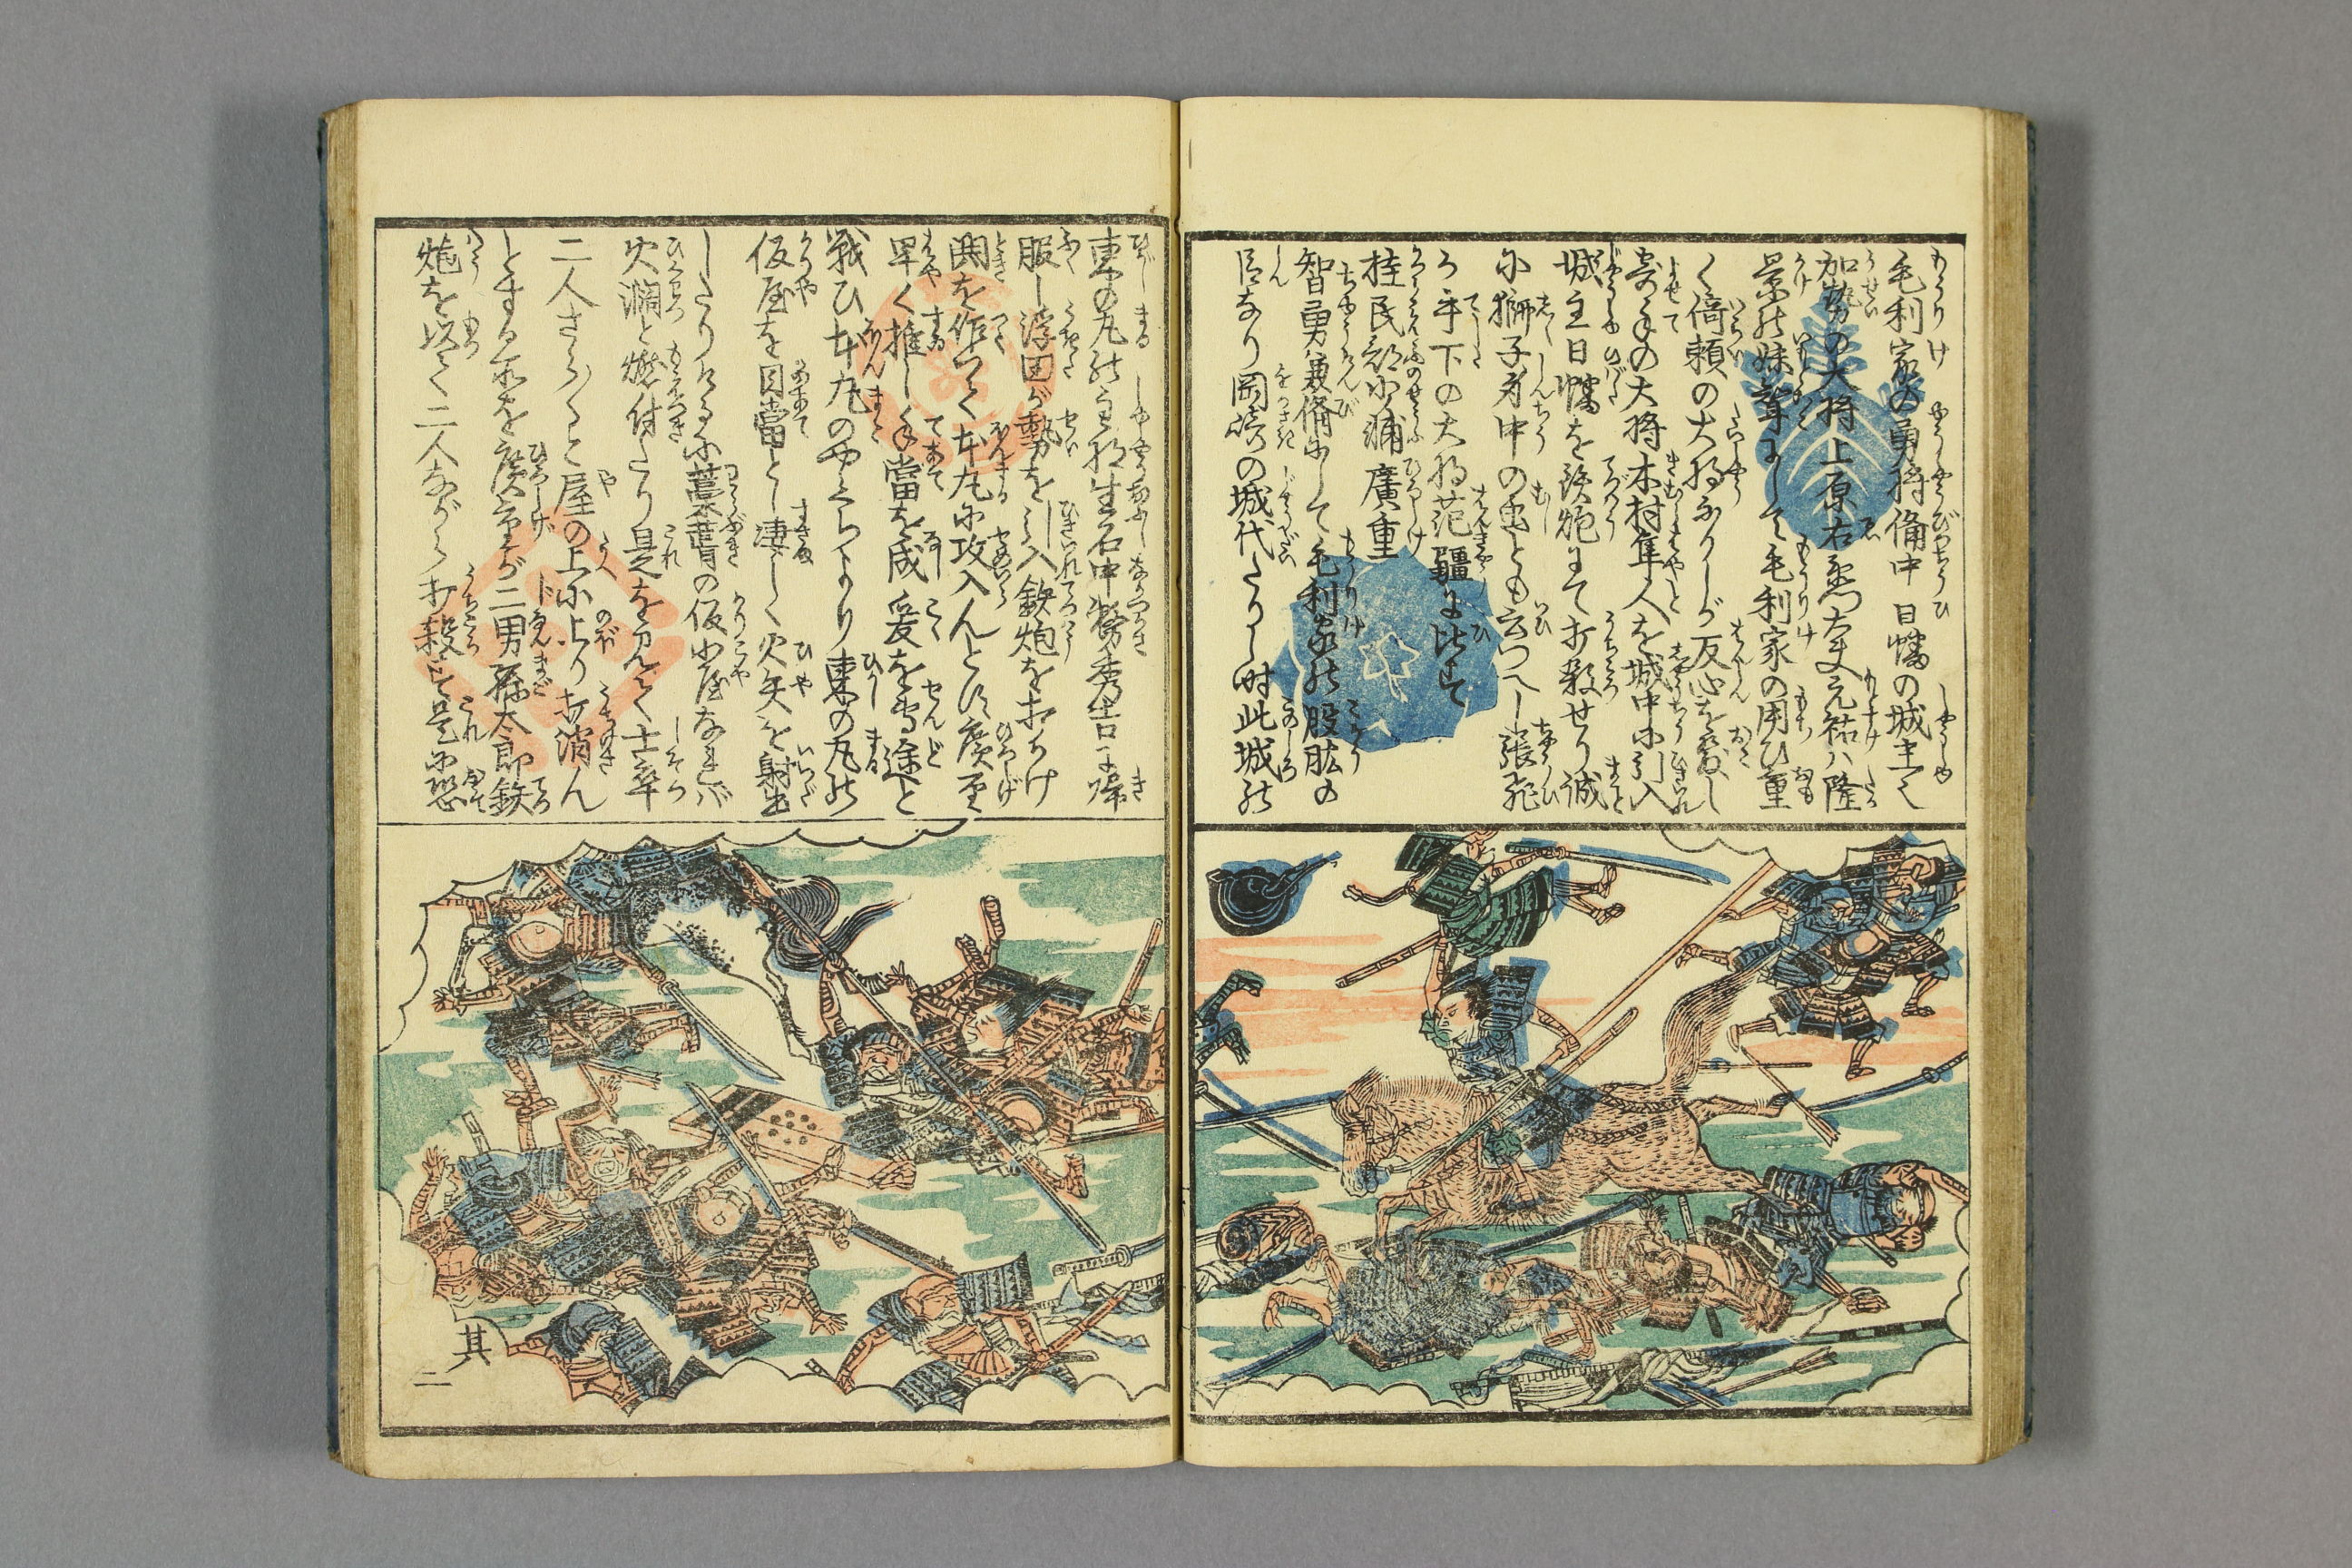 毛利家の勇将備中日幡の城主にて
加勢の大将上原右衛門大夫元祐ハ隆
景の妹聟にして毛利家の用ひ重
く倚頼の大将なりしが反心を發し
寄手の大将木村隼人を城中に引入
城主日幡を鉄炮にて打殺せり誠
に獅子身中の虫とも云つべし張飛
が手下の大将范疆に比す
桂民部少浦廣重
智勇兼備にして毛利家の股肱の
臣なり岡崎の城代たりし時此城の
東の丸の主将生石中務秀吉に帰
服し浮田が勢を引入鉄炮を打かけ
鬨を作つて本丸に攻入んとす廣重
早く推し手當を成爰を専途と
戦ひ本丸のやぐらより東の丸の
仮屋を目當とし透間なく火矢を射出
したりけるに藁葺の仮小屋なれバ
火𤄃と燃付たり是を見て士卒
二人さら〳〵と屋の上に上り打消ん
とする所を廣重が二男孫太郎鉄
炮を以て二人ながら打殺す是に恐
其
二